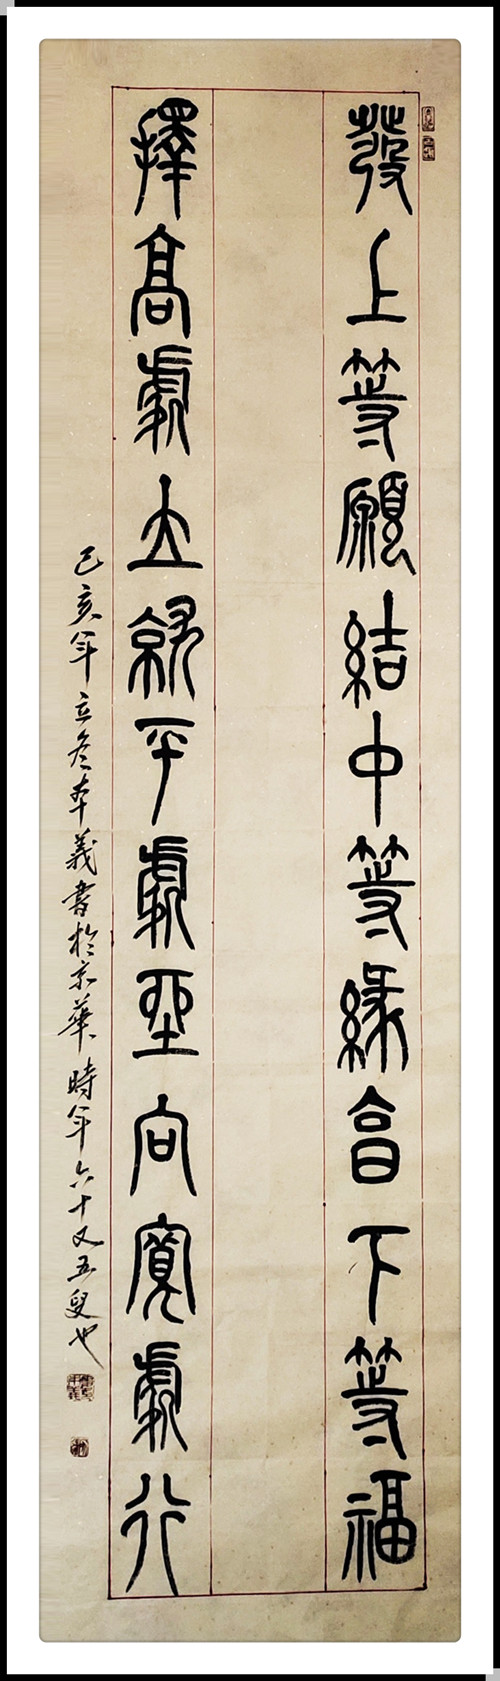 發上等願結中等緣享下等福
擇高處立就平處坐向寬處行
己亥年立冬本義書於京華時年六十又五叟也